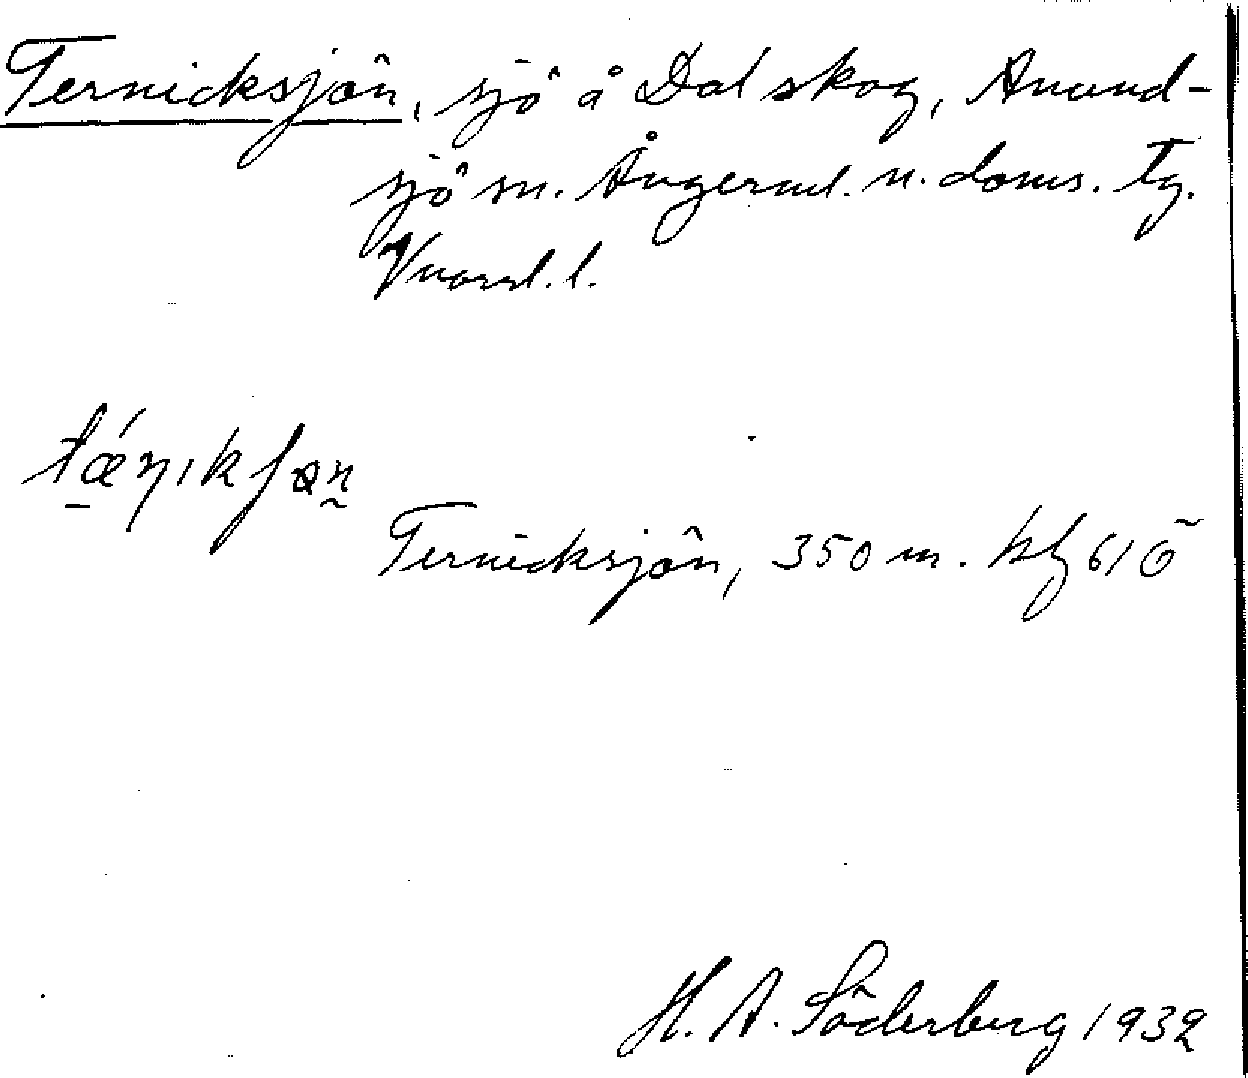 Ternicksjön, sjö å Dal skog, Anund-
sjö sn. Ångerml. n. doms. tg.
Vnorrl. l.
Ternicksjön, 350 m. kbl 61 Ö
H. A. Söderberg 1932